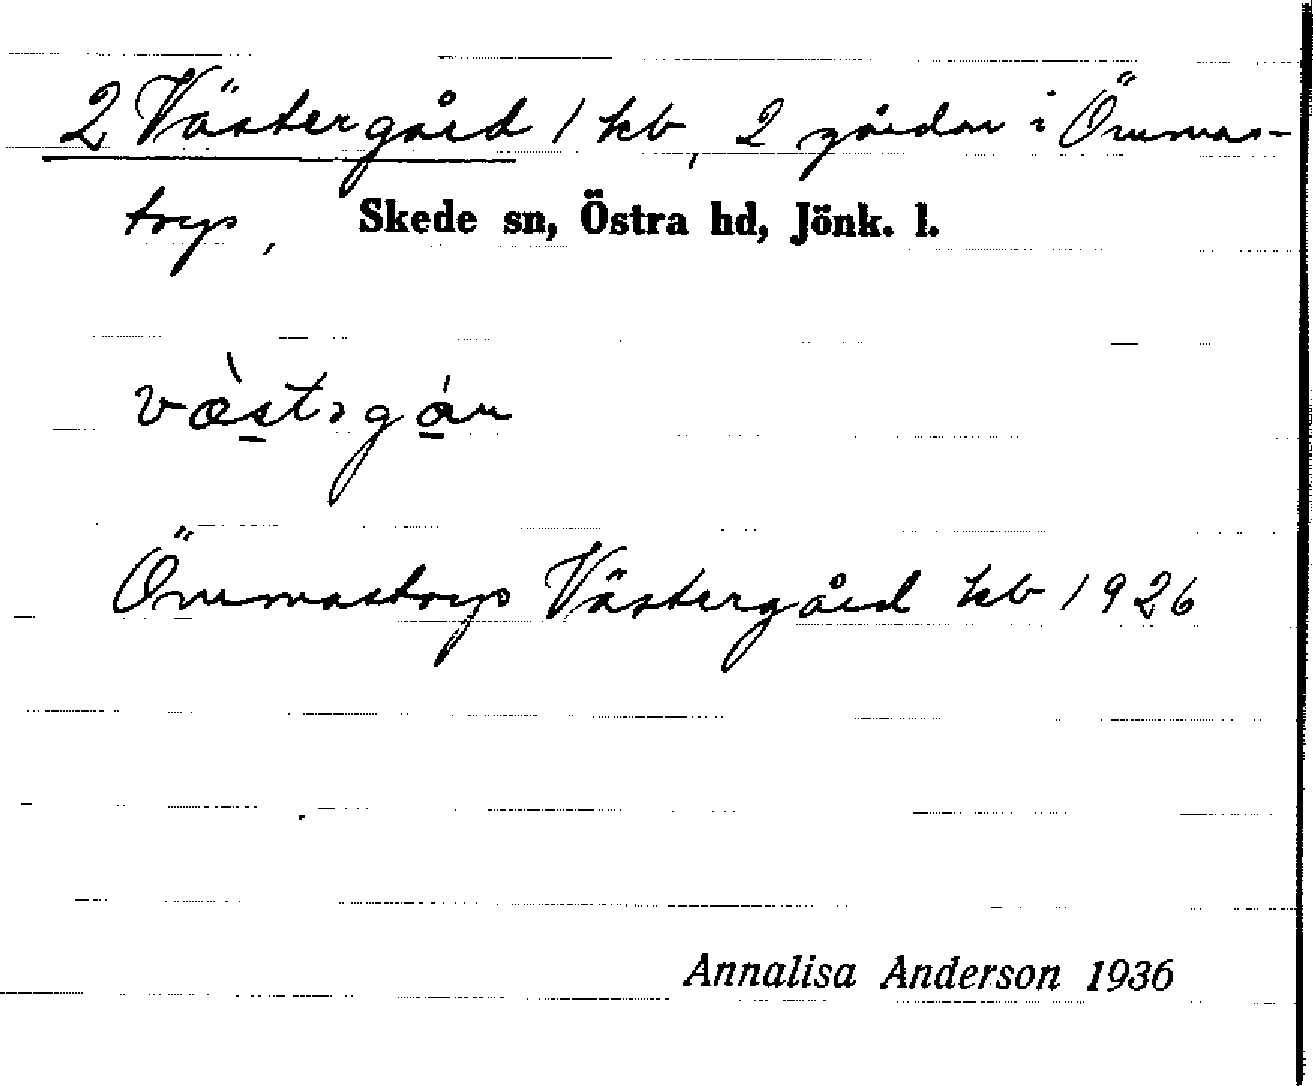 2 Västergård 1 kb, 2 gårdar i Ömmas-
tryp, Skede sn, Östra hd, Jönk. l.
Ömmastryp Västergård kb 1926
Annalisa Anderson 1936